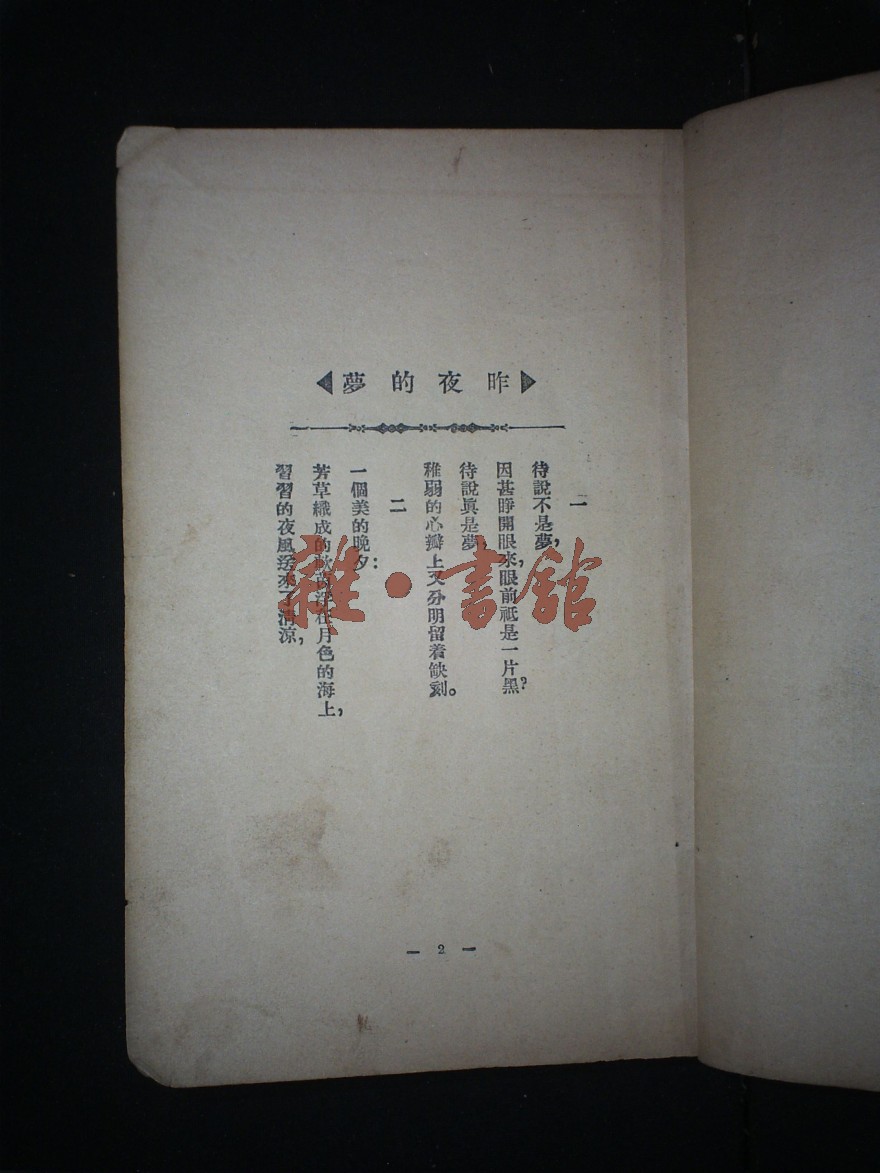 昨夜的夢
一
待說不是夢,
因甚睜開眼來,眼前祗是一片黑?
待說眞是夢,
稚弱的心瓣上又分明留着缺刻。
二
一個美的晚夕:
芳草織成的 月色的海上,
習習的夜風送來了清涼,
雜·書館
— 2 —